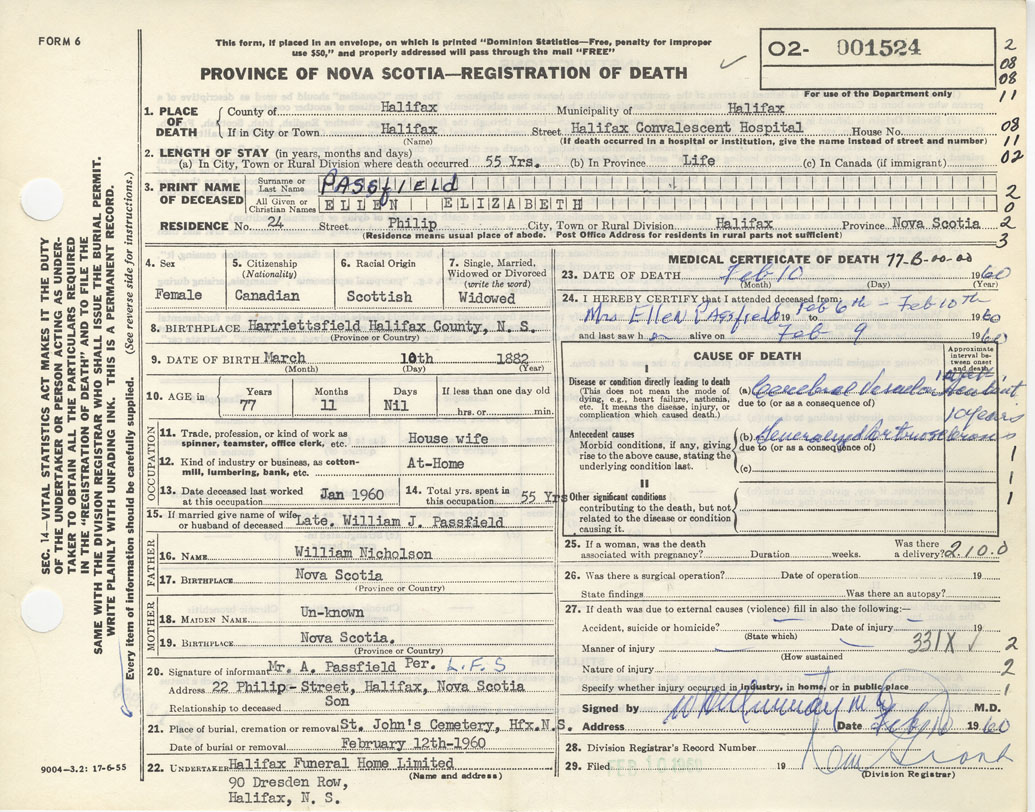 FORM 6
This form, if placed in an envelope, on which is printed "Dominion Statistics—Free, penalty for improper
use $50," and properly addressed will pass through the mail "FREE"
PROVINCE OF NOVA SCOTIA—REGISTRATION OF DEATH
O2- 001524
For use of the Department only
2
08
08
11
08
11
02
2
0
2
3
1. PLACE OF DEATH
County of Halifax Municipality of Halifax
If in City or Town Halifax Street Halifax Convalescent Hospital House No.
(Name) (If death occurred in a hospital or institution, give the name instead of street and number)
2. LENGTH OF STAY (in years, months and days)
(a) In City, Town or Rural Division where death occurred 55 Yrs. (b) In Province Life (c) In Canada (if immigrant)
3. PRINT NAME OF DECEASED
Surname or Last Name PASSfIELd
All Given or Christian Names ELLEN ELIZABETH
RESIDENCE No. 24 Street Philip City, Town or Rural Division Halifax Province Nova Scotia
(Residence means usual place of abode. Post Office Address for residents in rural parts not sufficient)
4. Sex
Female
5. Citizenship
(Nationality)
Canadian
6. Racial Origin
Scottish
7. Single, Married,
Widowed or Divorced
(write the word)
Widowed
8. BIRTHPLACE Harriettsfield Halifax County, N. S.
(Province or Country)
9. DATE OF BIRTH March 10th 1882
(Month) (Day) (Year)
10. AGE in
Years Months Days If less than one day old
77 11 Nil hrs. or min.
OCCUPATION
11. Trade, profession, or kind of work as
spinner, teamster, office clerk, etc. House wife
12. Kind of industry or business, as cotton-
mill, lumbering, bank, etc. At-Home
13. Date deceased last worked
at this occupation Jan 1960
14. Total yrs. spent in
this occupation 55 Yrs
15. If married give name of wife
or husband of deceased Late. William J. Passfield
FATHER
16. NAME William Nicholson
17. BIRTHPLACE Nova Scotia
(Province or Country)
MOTHER
18. MAIDEN NAME Un-known
19. BIRTHPLACE Nova Scotia.
(Province or Country)
20. Signature of informant Mr. A. Passfield Per. L.F.S
Address 22 Philip-Street, Halifax, Nova Scotia
Relationship to deceased Son
21. Place of burial, cremation or removal St. John's Cemetery, Hfx.N.S.
Date of burial or removal February 12th-1960
22. UNDERTAKER Halifax Funeral Home Limited
(Name and address)
90 Dresden Row,
Halifax, N. S.
MEDICAL CERTIFICATE OF DEATH 77-B-00-00
23. DATE OF DEATH Feb 10 1960
(Month) (Day) (Year)
24. I HEREBY CERTIFY that I attended deceased from
Mrs Ellen Passfield 19 to Feb 6th - Feb 10th 1960
and last saw h er alive on Feb 9 1960
CAUSE OF DEATH
Approximate
interval be-
tween onset
and death
I
Disease or condition directly leading to death
(This does not mean the mode of
dying, e.g., heart failure, asthenia,
etc. It means the disease, injury, or
complication which caused death.)
(a) Cerebral Vascular Accident
due to (or as a consequence of)
10 years
Antecedent causes
Morbid conditions, if any, giving
rise to the above cause, stating the
underlying condition last.
(b) Generalized Arteriosclerosis
due to (or as a consequence of)
(c)
1
1
1
1
II
Other significant conditions
contributing to the death, but not
related to the disease or condition
causing it.
25. If a woman, was the death Was there
associated with pregnancy? Duration weeks. a delivery? 2.10.0
26. Was there a surgical operation? Date of operation 19
State findings Was there an autopsy?
27. If death was due to external causes (violence) fill in also the following:—
Accident, suicide or homicide? Date of injury 19
(State which)
Manner of injury 331X 2
(How sustained
Nature of injury 2
Specify whether injury occurred in industry, in home, or in public place 1
Signed by M.D.
Address Date Feb 10 1960
28. Division Registrar's Record Number
29. Filed 19
(Division Registrar)
SEC. 14—VITAL STATISTICS ACT MAKES IT THE DUTY
OF THE UNDERTAKER OR PERSON ACTING AS UNDER-
TAKER TO OBTAIN ALL THE PARTICULARS REQUIRED
IN THE "REGISTRATION OF DEATH" AND TO FILE THE
SAME WITH THE DIVISION REGISTRAR WHO SHALL ISSUE THE BURIAL PERMIT.
WRITE PLAINLY WITH UNFADING INK. THIS IS A PERMANENT RECORD.
Every item of information should be carefully supplied. (See reverse side for instructions.)
9004-3.2: 17-6-55